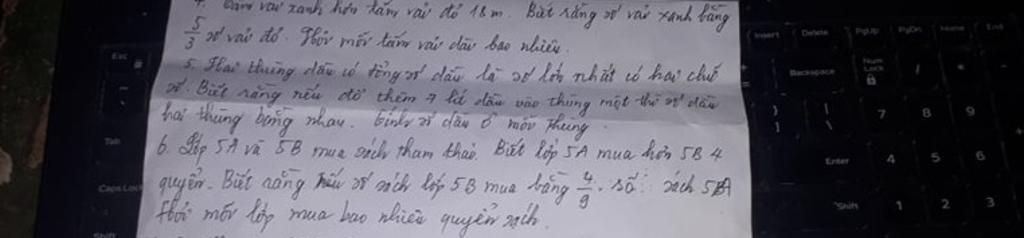 4. Tấm vải xanh hơn tấm vải đỏ 18m. Biết rằng số vải xanh bằng
5/3 số vải đỏ. Hỏi mỗi tấm vải dài bao nhiêu.
5. Hai thùng dầu có tổng số dầu là số lớn nhất có hai chữ
số. Biết rằng nếu đổ thêm 7 lít dầu vào thùng một thì số dầu
hai thùng bằng nhau. Tính số dầu ở mỗi thùng.
6. Lớp 5A và 5B mua sách tham thảo. Biết lớp 5A mua hơn 5B 4
quyển. Biết rằng số sách lớp 5B mua bằng 4/9 số sách 5A
Hỏi mỗi lớp mua bao nhiêu quyển sách.
Esc
Tab
Caps Lock
Shift
Insert
Delete
PgUp
PgDn
Home
End
Backspace
Num Lock
7 8 9
Enter
4 5 6
Shift
1 2 3